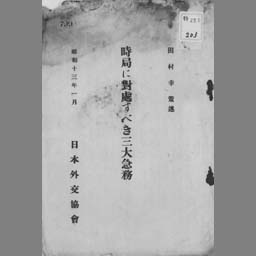 田村幸策述
時局に對處すべき三大急務
昭和十三年一月
日本外交協會
203